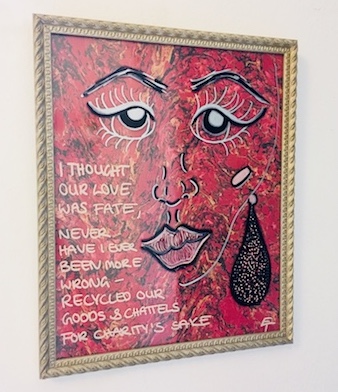 I THOUGHT
OUR LOVE
WAS FATE,
NEVER
HAVE I EVER
BEEN MORE
WRONG –
RECYCLED OUR
GOODS & CHATTELS
FOR CHARITY'S SAKE